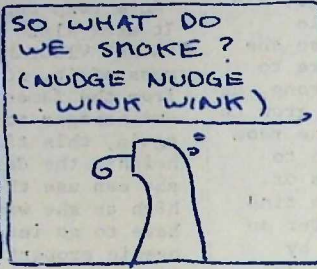 SO WHAT DO
WE SMOKE?
(NUDGE NUDGE
WINK WINK)